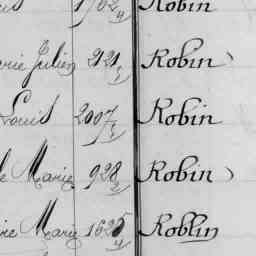 1702/4 Robin
Julien 2121/5 Robin
Louis 2007/3 Robin
Marie 928/2 Robin
Marie 1625/4 Roblin